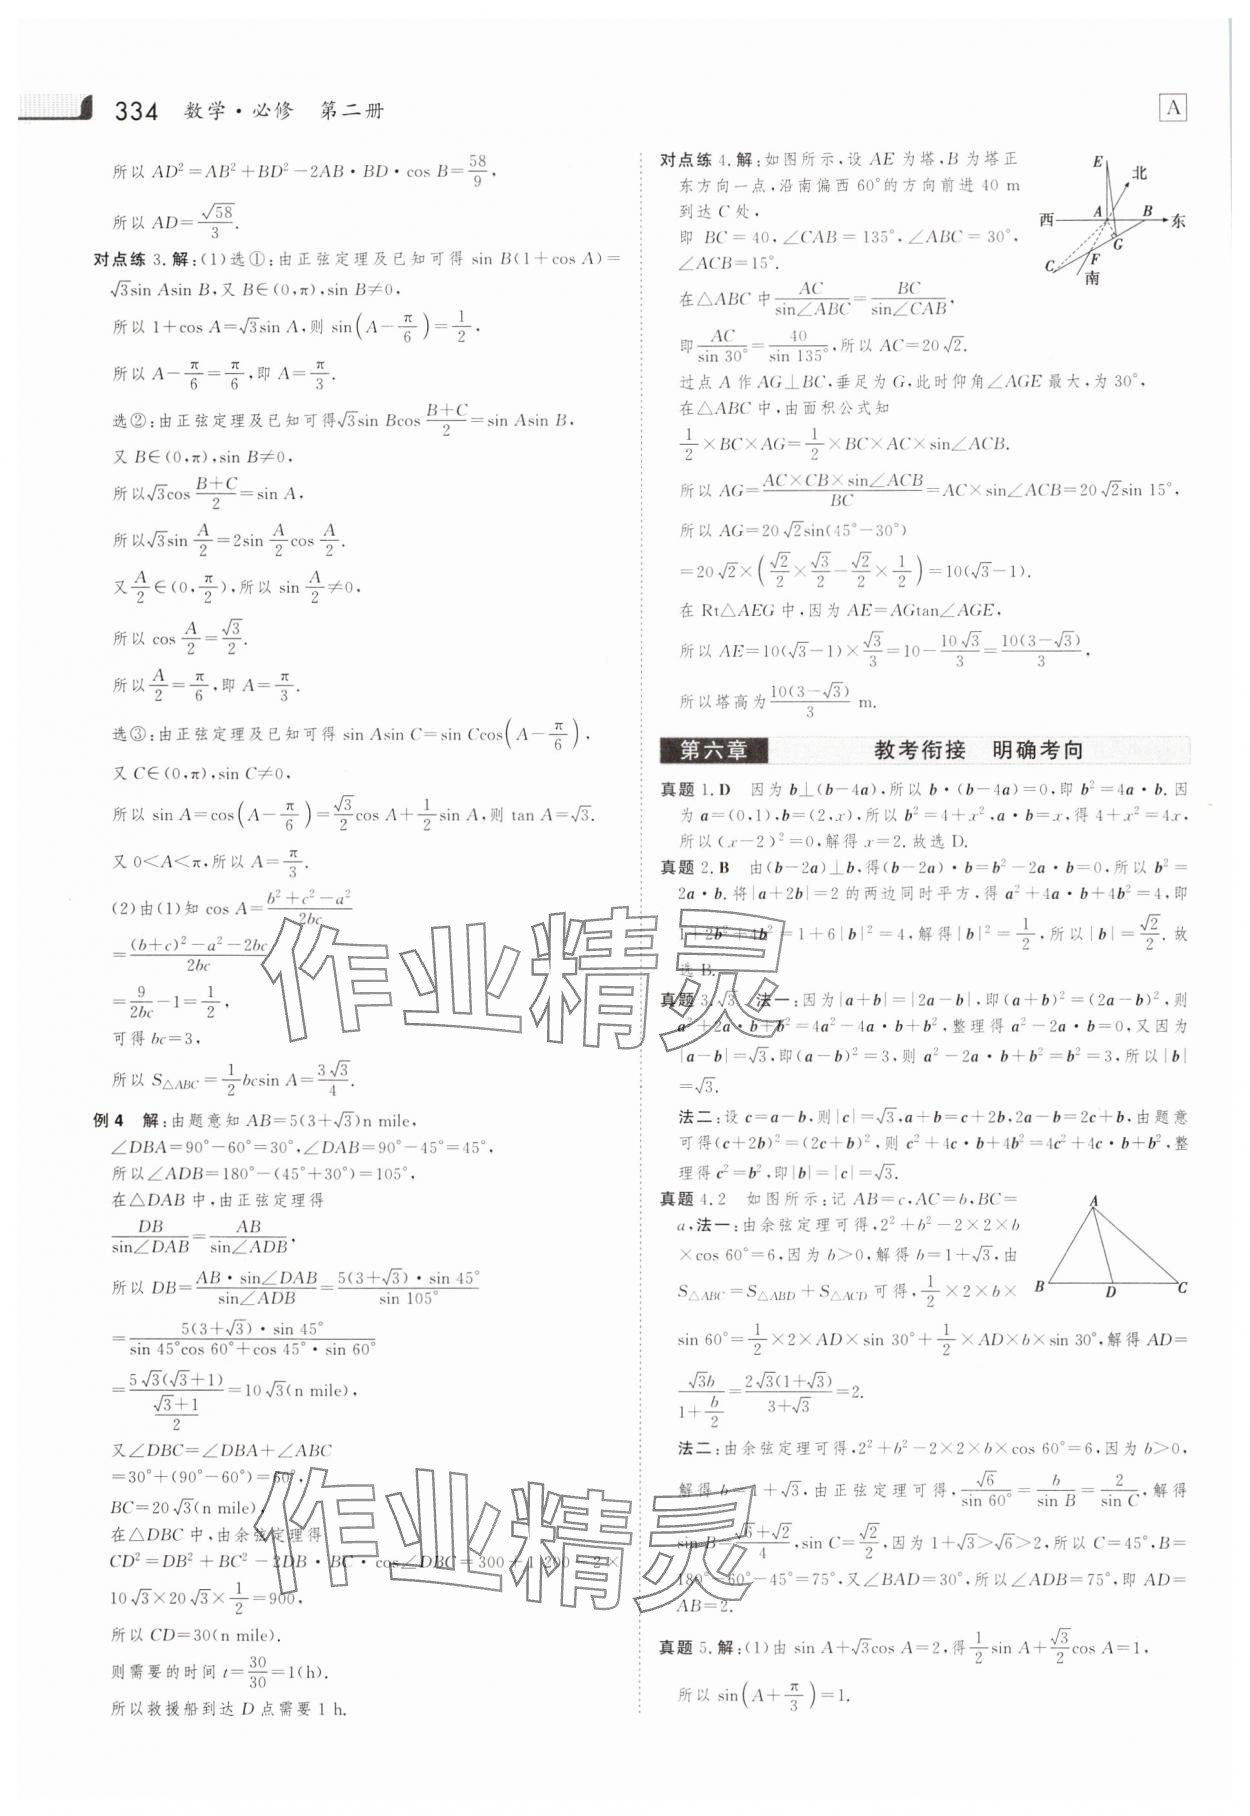 334 数学·必修 第二册
A
所以 AD²=AB²+BD²-2AB·BD·cos B=58/9,
所以 AD=√58/3.
对点练 3.解:(1)选①:由正弦定理及已知可得 sin B(1+cos A)=
√3sin Asin B,又 B∈(0,π),sin B≠0,
所以 1+cos A=√3sin A,则 sin(A-π/6)=1/2,
所以 A-π/6=π/6,即 A=π/3.
选②:由正弦定理及已知可得√3sin Bcos (B+C)/2=sin Asin B,
又 B∈(0,π),sin B≠0,
所以√3cos (B+C)/2=sin A,
所以√3sin A/2=2sin A/2 cos A/2.
又A/2∈(0,π/2),所以 sin A/2≠0,
所以 cos A/2=√3/2.
所以A/2=π/6,即 A=π/3.
选③:由正弦定理及已知可得 sin Asin C=sin Ccos(A-π/6),
又 C∈(0,π),sin C≠0,
所以 sin A=cos(A-π/6)=√3/2cos A+1/2sin A,则 tan A=√3.
又 0<A<π,所以 A=π/3.
(2)由(1)知 cos A=(b²+c²-a²)/2bc
=((b+c)²-a²-2bc)/2bc
=9/2bc-1=1/2,
可得 bc=3,
所以 S△ABC=1/2bcsin A=3√3/4.
例 4 解:由题意知 AB=5(3+√3)n mile,
∠DBA=90°-60°=30°,∠DAB=90°-45°=45°,
所以∠ADB=180°-(45°+30°)=105°,
在△DAB 中,由正弦定理得
DB/sin∠DAB=AB/sin∠ADB,
所以 DB=AB·sin∠DAB/sin∠ADB=5(3+√3)·sin 45°/sin 105°
=5(3+√3)·sin 45°/(sin 45°cos 60°+cos 45°·sin 60°)
=5√3(√3+1)/((√3+1)/2)=10√3(n mile),
又∠DBC=∠DBA+∠ABC
=30°+(90°-60°)=60°,
BC=20√3(n mile),
在△DBC 中,由余弦定理得
CD²=DB²+BC²-2DB·BC·cos∠DBC=300+1 200-2×
10√3×20√3×1/2=900,
所以 CD=30(n mile).
则需要的时间 t=30/30=1(h).
所以救援船到达 D 点需要 1 h.
对点练 4.解:如图所示,设 AE 为塔,B 为塔正
东方向一点,沿南偏西 60°的方向前进 40 m
到达 C 处,
即 BC=40,∠CAB=135°,∠ABC=30°,
∠ACB=15°.
E
北
西
A
B
东
G
F
C
南
在△ABC 中AC/sin∠ABC=BC/sin∠CAB,
即AC/sin 30°=40/sin 135°,所以 AC=20√2.
过点 A 作 AG⊥BC,垂足为 G,此时仰角∠AGE 最大,为 30°,
在△ABC 中,由面积公式知
1/2×BC×AG=1/2×BC×AC×sin∠ACB.
所以 AG=AC×CB×sin∠ACB/BC=AC×sin∠ACB=20√2sin 15°,
所以 AG=20√2sin(45°-30°)
=20√2×(√2/2×√3/2-√2/2×1/2)=10(√3-1).
在 Rt△AEG 中,因为 AE=AGtan∠AGE,
所以 AE=10(√3-1)×√3/3=10-10√3/3=10(3-√3)/3,
所以塔高为10(3-√3)/3 m.
第六章 教考衔接 明确考向
真题 1.D 因为 b⊥(b-4a),所以 b·(b-4a)=0,即 b²=4a·b.因
为 a=(0,1),b=(2,x),所以 b²=4+x²,a·b=x,得 4+x²=4x,
所以(x-2)²=0,解得 x=2.故选 D.
真题 2.B 由(b-2a)⊥b,得(b-2a)·b=b²-2a·b=0,所以 b²=
2a·b.将|a+2b|=2 的两边同时平方,得 a²+4a·b+4b²=4,即
1+2b²+4b²=1+6|b|²=4,解得|b|²=1/2,所以|b|=√2/2.故
选 B.
真题 3.√3 法一:因为|a+b|=|2a-b|,即(a+b)²=(2a-b)²,则
a²+2a·b+b²=4a²-4a·b+b²,整理得 a²-2a·b=0,又因为
|a-b|=√3,即(a-b)²=3,则 a²-2a·b+b²=b²=3,所以|b|
=√3.
法二:设 c=a-b,则|c|=√3,a+b=c+2b,2a-b=2c+b,由题意
可得(c+2b)²=(2c+b)²,则 c²+4c·b+4b²=4c²+4c·b+b²,整
理得 c²=b²,即|b|=|c|=√3.
真题 4.2 如图所示:记 AB=c,AC=b,BC=
a,法一:由余弦定理可得,2²+b²-2×2×b
×cos 60°=6,因为 b>0,解得 b=1+√3,由
S△ABC=S△ABD+S△ACD 可得,1/2×2×b×
A
B
D
C
sin 60°=1/2×2×AD×sin 30°+1/2×AD×b×sin 30°,解得 AD=
√3b/(1+b/2)=2√3(1+√3)/(3+√3)=2.
法二:由余弦定理可得,2²+b²-2×2×b×cos 60°=6,因为 b>0,
解得 b=1+√3,由正弦定理可得,√6/sin 60°=b/sin B=2/sin C,解得
sin B=(√6+√2)/4,sin C=√2/2,因为 1+√3>√6>2,所以 C=45°,B=
180°-60°-45°=75°,又∠BAD=30°,所以∠ADB=75°,即 AD=
AB=2.
真题 5.解:(1)由 sin A+√3cos A=2,得1/2sin A+√3/2cos A=1,
所以 sin(A+π/3)=1.
作业精灵
作业精灵